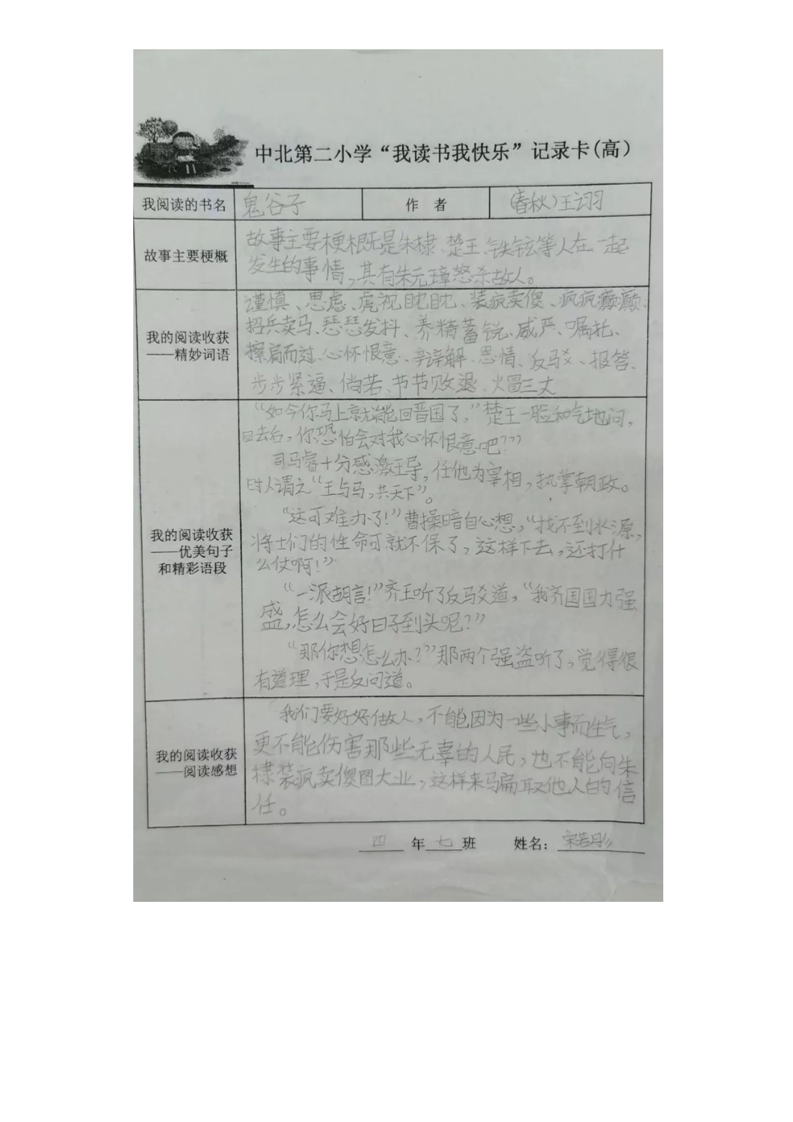 中北第二小学“我读书我快乐”记录卡(高)
我阅读的书名 鬼谷子 作 者 (春秋)王诩
故事主要梗概
故事主要梗概既是朱棣、楚王、铁铉等人在一起
发生的事情,其有朱元璋怒杀故人。
我的阅读收获
——精妙词语
谨慎、思虑、虎视眈眈、装疯卖傻、疯疯癫癫、
招兵卖马、瑟瑟发抖、养精蓄锐、威严、嘱托、
擦肩而过、心怀恨意、辩解、恩情、反驳、报答、
步步紧逼、倘若、节节败退、火冒三丈
我的阅读收获
——优美句子
和精彩语段
“如今你马上就能回晋国了,”楚王一脸和气地问,
回去后,你恐怕会对我心怀恨意吧?”
司马睿十分感激王导,任他为宰相,执掌朝政。
时人谓之“王与马,共天下”。
“这可难办了!”曹操暗自心想,“找不到水源,
将士们的性命可就不保了,这样下去,还打什
么仗啊!”
“一派胡言!”齐王听了反驳道,“我齐国国力强
盛,怎么会好日子到头呢?”
“那你想怎么办?”那两个强盗听了,觉得很
有道理,于是反问道。
我的阅读收获
——阅读感想
我们要好好做人,不能因为一些小事而生气,
更不能伤害那些无辜的人民,也不能向朱
棣装疯卖傻图大业,这样来骗取他人的信
任。
四 年 七 班 姓名: